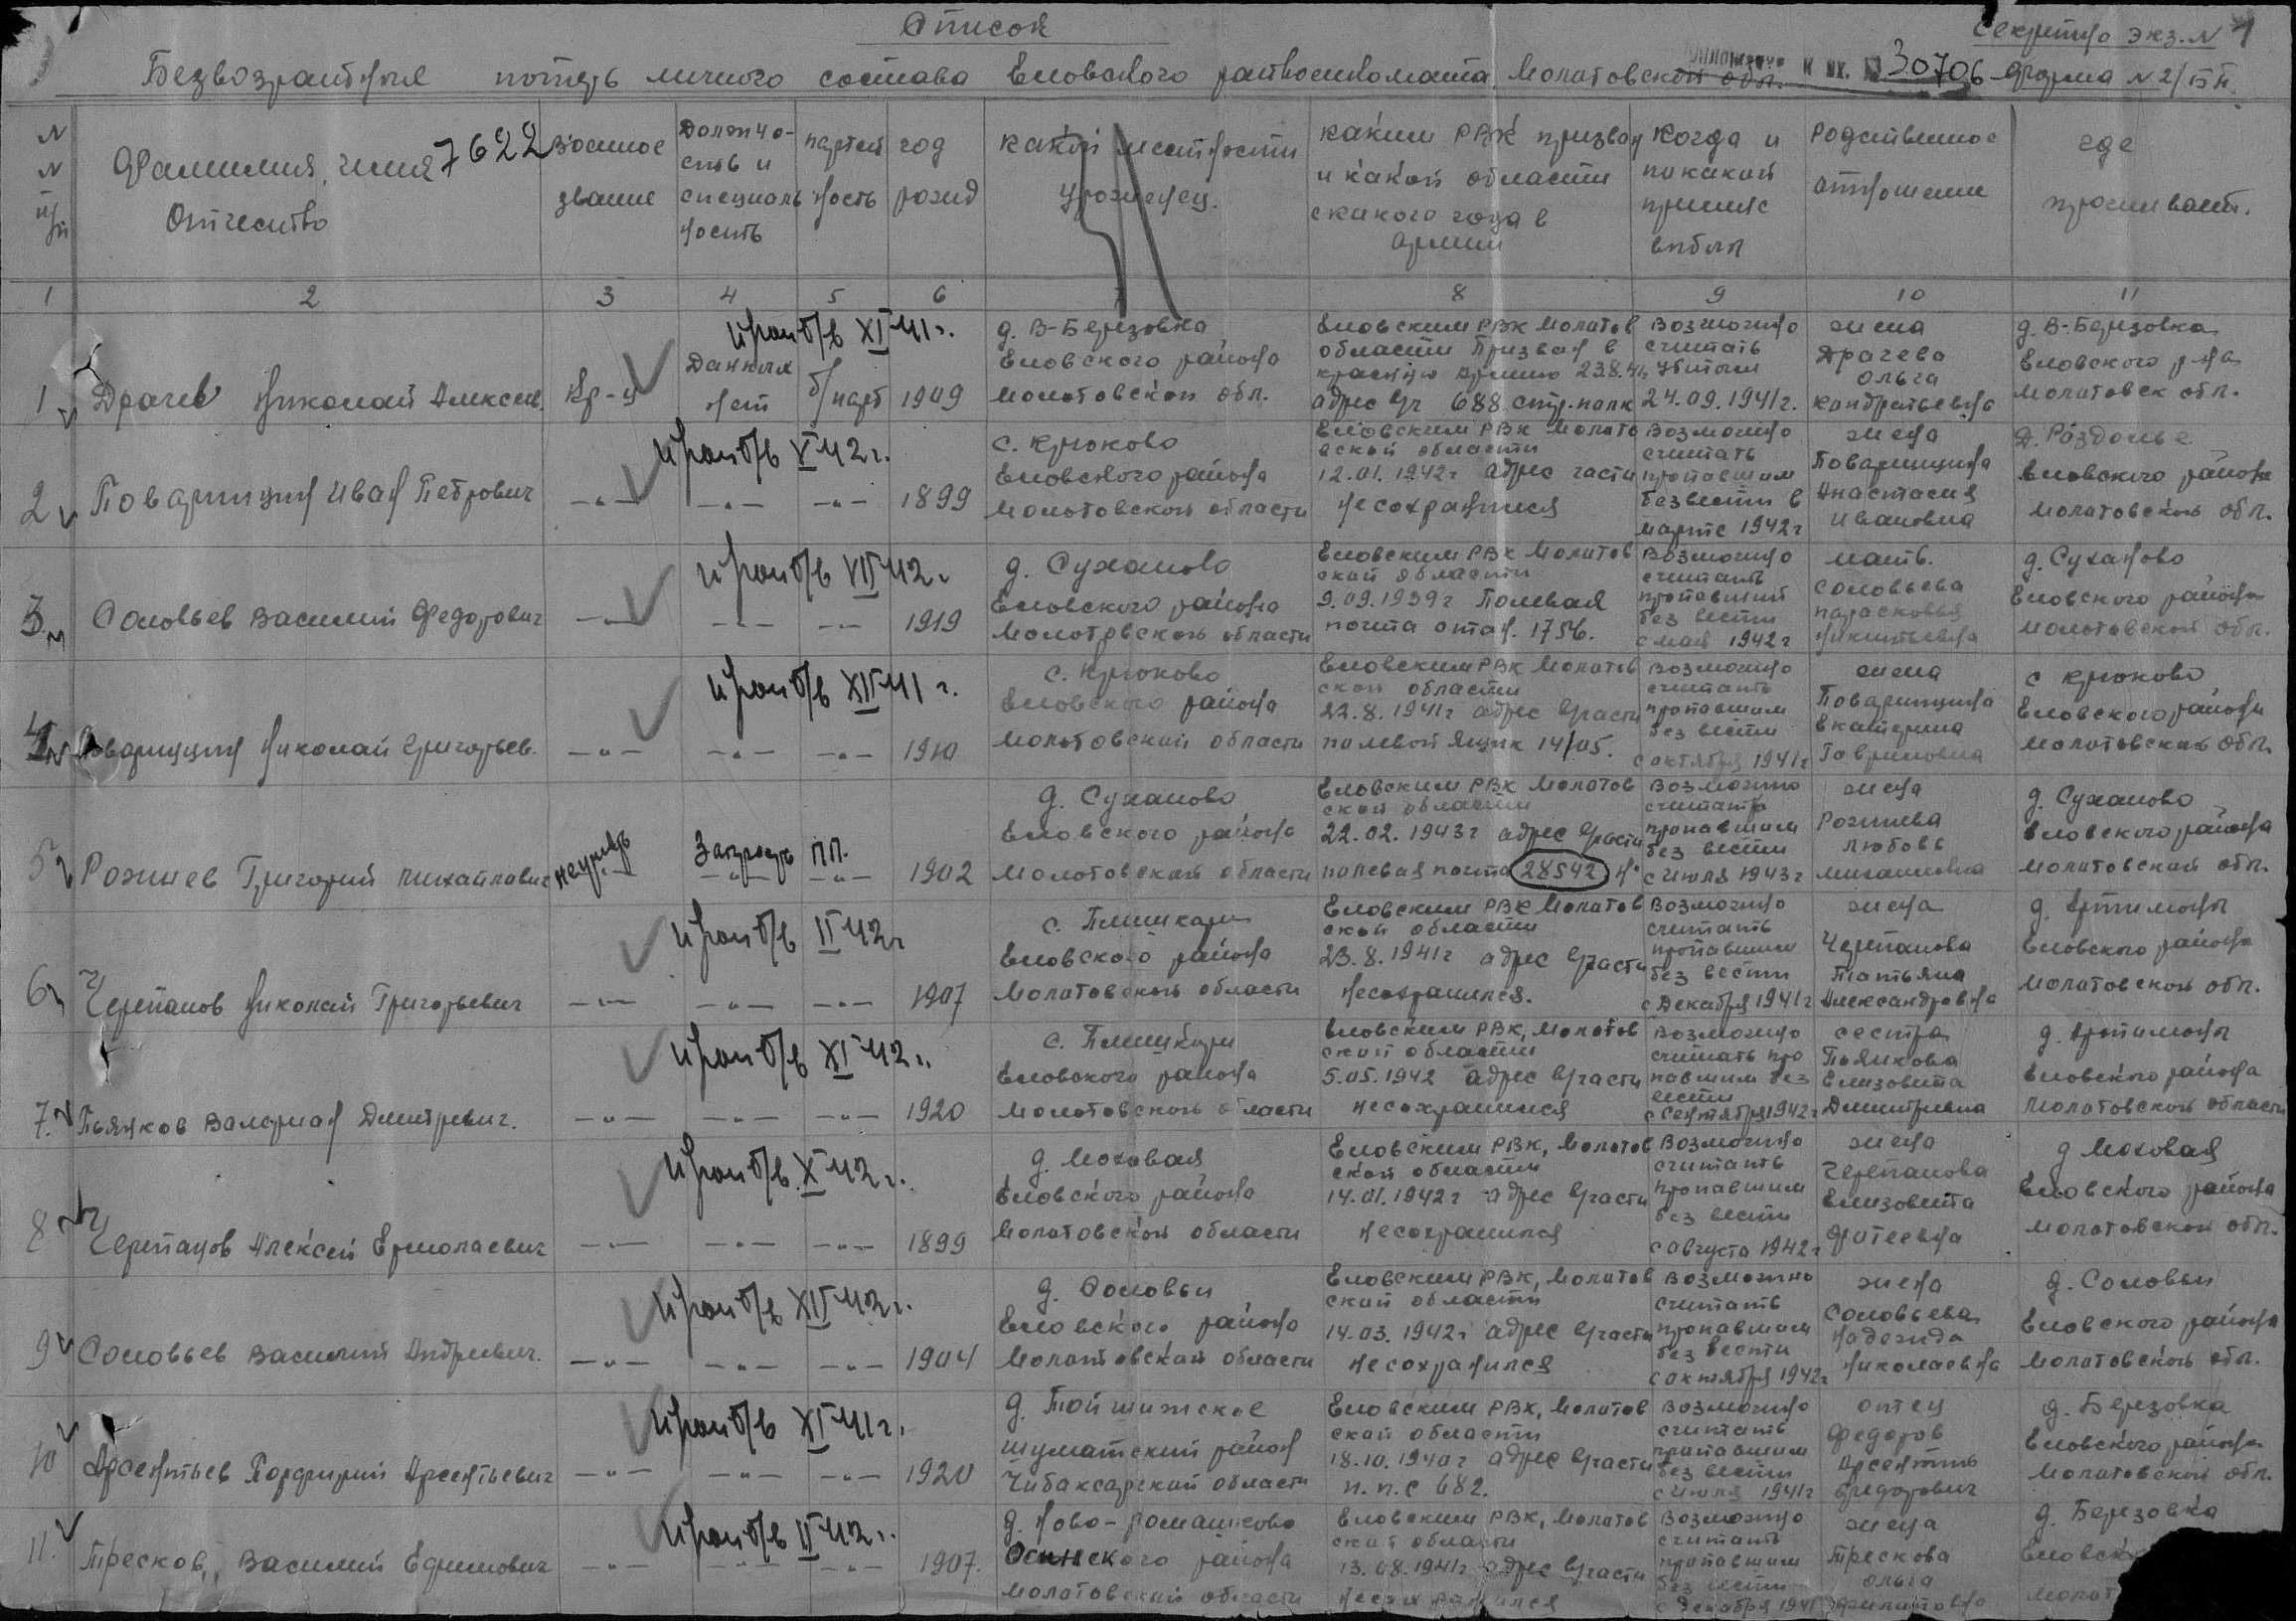 Список
Секретно экз. N 1
Безвозвратных потерь личного состава Еловского райвоенкомата, Молотовской обл. 30706 Форма N 2/БП
N N п/п
Фамилия, имя Отчество
7622
Военное звание
Должность и специальность
партийность
год рожд
какой местности уроженец.
каким РВК призван и какой области с какого года в армии
Когда и по какой причине выбыл
Родственное отношение
где проживает.
1 2 3 4 5 6 8 9 10 11
1 Драчев Николай Алексеев. Кр-ц Данных нет б/парт 1909
проп б/в XI 41 г.
д. В-Березовка Еловского района Молотовской обл.
Еловским РВК Молотов области Призван в красную армию 23.8.41 адрес в/ч 688 стр. полк
Возможно считать убитым 24.09.1941г.
жена Драчева Ольга Кондратьевна
д. В-Березовка Еловского р-на Молотовск обл.
2 Поварницин Иван Петрович -"- -"- -"- 1899
проп б/в V 42 г.
с. Крюково Еловского района Молотовской области
Еловским РВК Молотовской области 12.01.1942г адрес части несохранился
Возможно считать пропавшим без вести в марте 1942г
жена Поварницина Анастасия Ивановна
д. Раздолье Еловского района Молотовской обл.
3. Соловьев Василий Федорович -"- -"- -"- 1919
проп б/в VII 42 г.
д. Суханово Еловского района Молотовской области
Еловским РВК Молотовской области 9.09.1939г Полевая почта стан. 1756.
Возможно считать пропавший без вести с мая 1942г
мать. Соловьева Парасковья Никитьевна
д. Суханово Еловского района Молотовской обл.
4 Поварницин Николай Григорьев. -"- -"- -"- 1910
проп б/в XII 41 г.
с. Крюково Еловского района Молотовской области
Еловским РВК Молотовской области 22.8.1941г адрес в/части полевой ящик 14/05.
Возможно считать пропавшим без вести с октября 1941г
жена Поварницина Екатерина Гавриловна
с Крюково Еловского района Молотовской обл.
5 Рожнев Григорий Михайлович -"- -"- 1902
Запрос пп.
д. Суханово Еловского района Молотовской области
Еловским РВК Молотовской области 22.02.1943г адрес в/части полевая почта 28542
Возможно считать пропавшим без вести с июля 1943г
жена Рожнева Любовь Михайловна
д. Суханово Еловского района Молотовской обл.
6 Черепанов Николай Григорьевич -"- -"- -"- 1907
проп б/в II 42 г
с. Плишкари Еловского района Молотовской области
Еловским РВК Молотовской области 23.8.1941г адрес в/части несохранился.
Возможно считать пропавшим без вести с Декабря 1941г
жена Черепанова Татьяна Александровна
д. Артимоны Еловского района Молотовской обл.
7. Пьянков Валериан Дмитревич. -"- -"- -"- 1920
проп б/в XI 42 г.
с. Плишкари Еловского района Молотовской области
Еловским РВК, Молотовской области 5.05.1942 адрес в/части несохранился
Возможно считать пропавшим без вести с Сентября 1942г
сестра Пьянкова Елизовета Дмитриевна
д. Артимоны Еловского района Молотовской области
8 Черепанов Алексей Ермолаевич -"- -"- -"- 1899
проп б/в X 42 г.
д. Моховая Еловского района Молотовской области
Еловским РВК, Молотовской области 14.01.1942г адрес в/части несохранился
Возможно считать пропавшим без вести с августа 1942г
жена Черепанова Елизовета Фатеевна
д Моховая Еловского района Молотовской обл.
9 Соловьев Василий Андреевич. -"- -"- -"- 1904
проп б/в XII 42 г.
д. Соловьи Еловского района Молотовской области
Еловским РВК, Молотовской области 14.03.1942г адрес в/части несохранился
Возможно считать пропавшим без вести с октября 1942г
жена Соловьева Надежда Николаевна
д. Соловьи Еловского района Молотовской обл.
10 Арсентьев Порфирий Арсентьевич -"- -"- -"- 1920
проп б/в XI 41 г.
д. Тойшижское Шуматский район Чибаксарской области
Еловским РВК, Молотовской области 18.10.1940г адрес в/части п.п.с 682.
Возможно считать пропавшим без вести с июля 1941г
отец Федоров Арсентий Федорович
д. Березовка Еловского района Молотовской обл.
11. Тресков, Василий Ефимович -"- -"- -"- 1907.
проп б/в II 42 г.
д. Ново-Ромашково Осинского района Молотовской области
Еловским РВК, Молотовской области 13.08.1941г адрес в/части несохранился
Возможно считать пропавшим без вести с декабря 1941
жена Трескова Ольга Филиповна
д. Березовка Еловск Молот